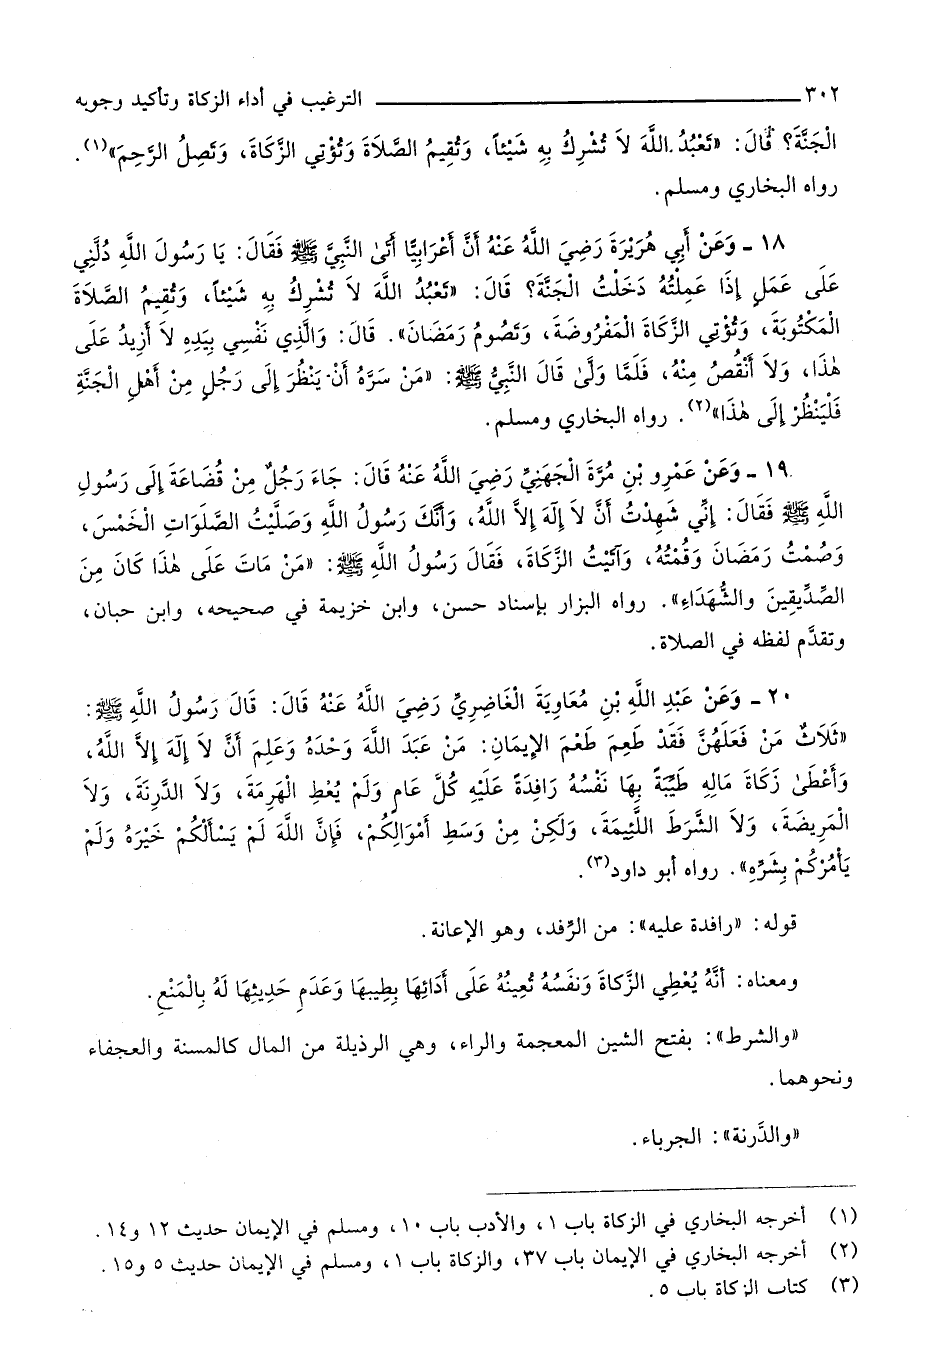 ٣٠٢ ــــــــــــــــــــ الترغيب في أداء الزكاة وتأكيد وجوبه
الْجَنَّةَ؟ قَالَ: «تَعْبُدُ اللَّهَ لاَ تُشْرِكُ بِهِ شَيْئاً، وَتُقِيمُ الصَّلاَةَ وَتُؤْتِي الزَّكَاةَ، وَتَصِلُ الرَّحِمَ»(١).
رواه البخاري ومسلم.
١٨ ـ وَعَنْ أَبِي هُرَيْرَةَ رَضِيَ اللَّهُ عَنْهُ أَنَّ أَعْرَابِيًّا أَتَى النَّبِيَّ ﷺ فَقَالَ: يَا رَسُولَ اللَّهِ دُلَّنِي
عَلَى عَمَلٍ إِذَا عَمِلْتُهُ دَخَلْتُ الْجَنَّةَ؟ قَالَ: «تَعْبُدُ اللَّهَ لاَ تُشْرِكُ بِهِ شَيْئاً، وَتُقِيمُ الصَّلاَةَ
الْمَكْتُوبَةَ، وَتُؤْتِي الزَّكَاةَ الْمَفْرُوضَةَ، وَتَصُومُ رَمَضَانَ». قَالَ: وَالَّذِي نَفْسِي بِيَدِهِ لاَ أَزِيدُ عَلَى
هٰذَا، وَلاَ أَنْقُصُ مِنْهُ، فَلَمَّا وَلَّىٰ قَالَ النَّبِيُّ ﷺ: «مَنْ سَرَّهُ أَنْ يَنْظُرَ إِلَى رَجُلٍ مِنْ أَهْلِ الْجَنَّةِ
فَلْيَنْظُرْ إِلَى هٰذَا»(٢). رواه البخاري ومسلم.
١٩ ـ وَعَنْ عَمْرِو بْنِ مُرَّةَ الْجَهَنِيِّ رَضِيَ اللَّهُ عَنْهُ قَالَ: جَاءَ رَجُلٌ مِنْ قُضَاعَةَ إِلَى رَسُولِ
اللَّهِ ﷺ فَقَالَ: إِنِّي شَهِدْتُ أَنَّ لاَ إِلٰهَ إِلاَّ اللَّهُ، وَأَنَّكَ رَسُولُ اللَّهِ وَصَلَّيْتُ الصَّلَوَاتِ الْخَمْسَ،
وَصُمْتُ رَمَضَانَ وَقُمْتُهُ، وَآتَيْتُ الزَّكَاةَ، فَقَالَ رَسُولُ اللَّهِ ﷺ: «مَنْ مَاتَ عَلَى هٰذَا كَانَ مِنَ
الصِّدِّيقِينَ والشُّهَدَاءِ». رواه البزار بإسناد حسن، وابن خزيمة في صحيحه، وابن حبان،
وتقدَّم لفظه في الصلاة.
٢٠ ـ وَعَنْ عَبْدِ اللَّهِ بْنِ مُعَاوِيَةَ الْغَاضِرِيِّ رَضِيَ اللَّهُ عَنْهُ قَالَ: قَالَ رَسُولُ اللَّهِ ﷺ:
«ثَلاَثٌ مَنْ فَعَلَهُنَّ فَقَدْ طَعِمَ طَعْمَ الإِيمَانِ: مَنْ عَبَدَ اللَّهَ وَحْدَهُ وَعَلِمَ أَنَّ لاَ إِلٰهَ إِلاَّ اللَّهُ،
وَأَعْطَىٰ زَكَاةَ مَالِهِ طَيِّبَةً بِهَا نَفْسُهُ رَافِدَةً عَلَيْهِ كُلَّ عَامٍ وَلَمْ يُعْطِ الْهَرِمَةَ، وَلاَ الدَّرِنَةَ، وَلاَ
الْمَرِيضَةَ، وَلاَ الشَّرَطَ اللَّئِيمَةَ، وَلَكِنْ مِنْ وَسَطِ أَمْوَالِكُمْ، فَإِنَّ اللَّهَ لَمْ يَسْأَلْكُمْ خَيْرَهُ وَلَمْ
يَأْمُرْكُمْ بِشَرِّهِ». رواه أبو داود(٣).
قوله: «رافدة عليه»: من الرَّفد، وهو الإعانة.
ومعناه: أَنَّهُ يُعْطِي الزَّكَاةَ وَنَفْسُهُ تُعِينُهُ عَلَى أَدَائِهَا بِطِيبِهَا وَعَدَمِ حَدِيثِهَا لَهُ بِالْمَنْعِ.
«والشرط»: بفتح الشين المعجمة والراء، وهي الرذيلة من المال كالمسنة والعجفاء
ونحوهما.
«والدَّرنة»: الجرباء.
(١) أخرجه البخاري في الزكاة باب ١، والأدب باب ١٠، ومسلم في الإيمان حديث ١٢ و١٤.
(٢) أخرجه البخاري في الإيمان باب ٣٧، والزكاة باب ١، ومسلم في الإيمان حديث ٥ و١٥.
(٣) كتاب الزكاة باب ٥.